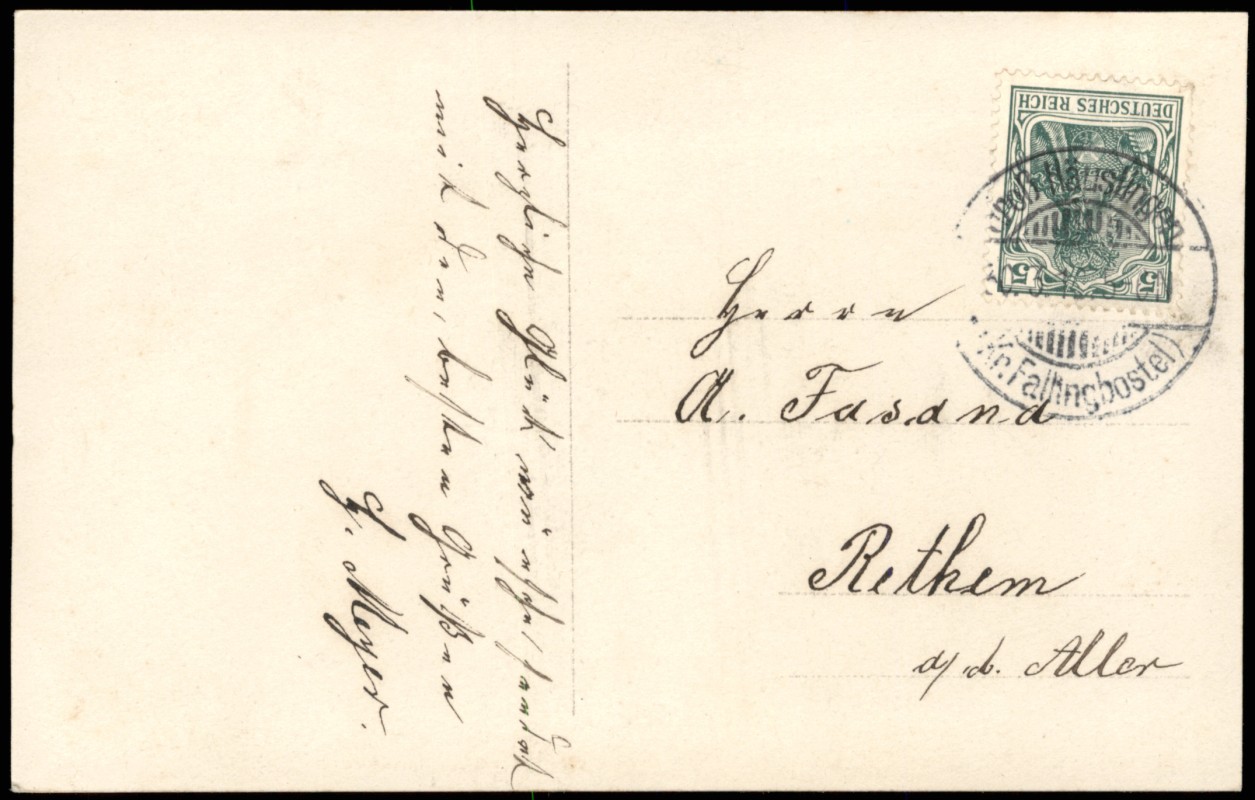 Herzliche Glückwünsche, sendet
mit den besten Grüßen
H. Meyer.
DEUTSCHES REICH
5 5
Häuslingen
(Kr. Fallingbostel)
Herrn
A. Fasand
Rethem
a/d. Aller